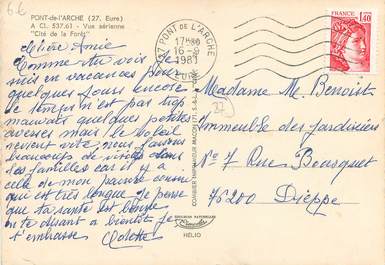 6€
PONT-de-l'ARCHE (27. Eure)
A Cl. 537.61 - Vue aérienne
"Cité de la Forêt"
Chère Amie
Comme tu vois je
suis en vacances pour
quelques jours encore
le temps n'est pas trop
mauvais quelques petites
averses mais le soleil
revient vite, nous faisons
beaucoup de visites dans
les familles car il y a
celle de mon pauvre cousin
qui est très longue. Je pense
que ta santé est bonne
en te disant a bientôt je
t'embrasse Colette
27 PONT DE L'ARCHE
17H30
16-
1981
EURE
COMBIER IMPRIMEUR MACON (71 S.-&-L.)
COULEURS NATURELLES
HÉLIO
27
REPUBLIQUE FRANCAISE
1,40
Madame M. Benoist
Immeuble des Jardinières
No 7 Rue Bousquet
76200 Dieppe